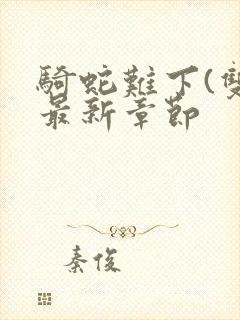 騎蛇難下(雙
最新章節
秦俊